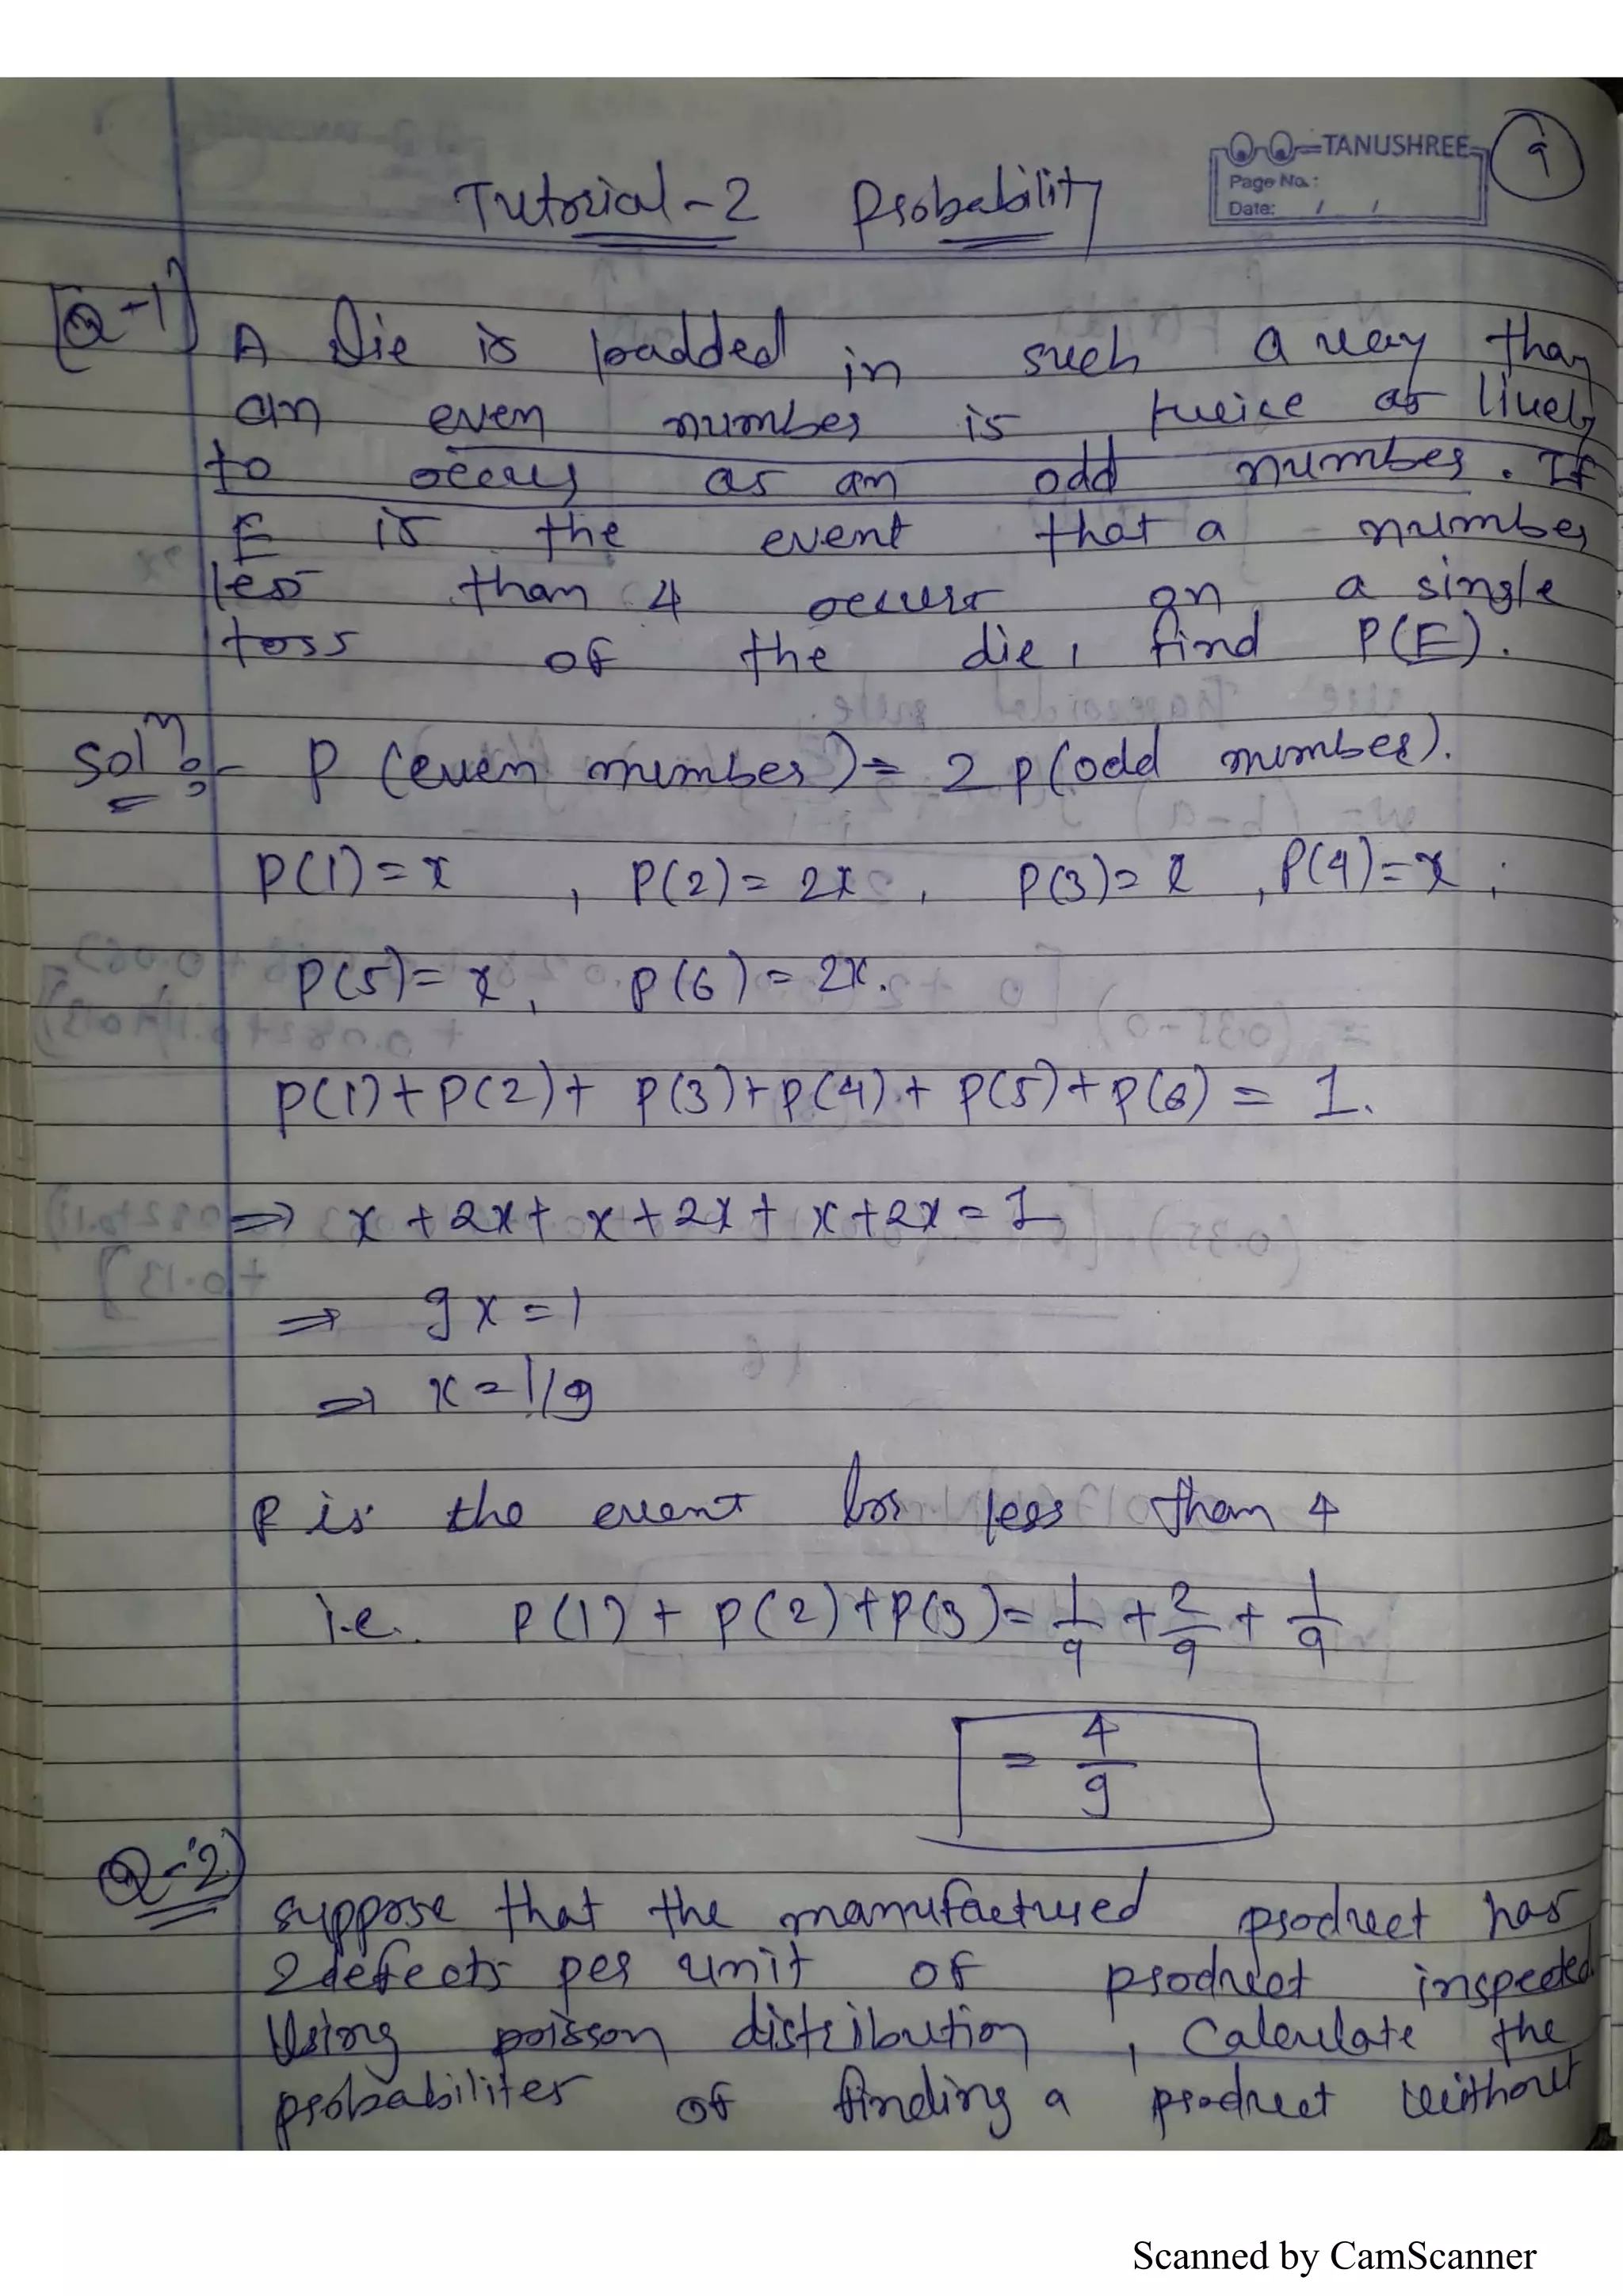 TANUSHREE
Page No.:
Date: / /
9
Tutorial-2 Probability
Q-1) A Die is loadded in such a way than
an even number is twice as likely
to occur as an odd number. If
E is the event that a number
less than 4 occurs on a single
toss of the die, find P(E).
Solⁿ:- P (even number) = 2 P(odd number).
P(1)=x , P(2)=2x , P(3)=x , P(4)=x ,
P(5)=x, P(6)=2x.
P(1)+P(2)+P(3)+P(4)+P(5)+P(6) = 1.
⇒ x+2x+x+2x+x+2x=1
⇒ 9x=1
⇒ x=1/9
P is the event for less than 4
i.e. P(1)+P(2)+P(3)=1/9+2/9+1/9
= 4/9
Q-2) suppose that the manufactured product has
2 defects per unit of product inspected.
Using poisson distribution, Calculate the
probabilites of finding a product without
Scanned by CamScanner